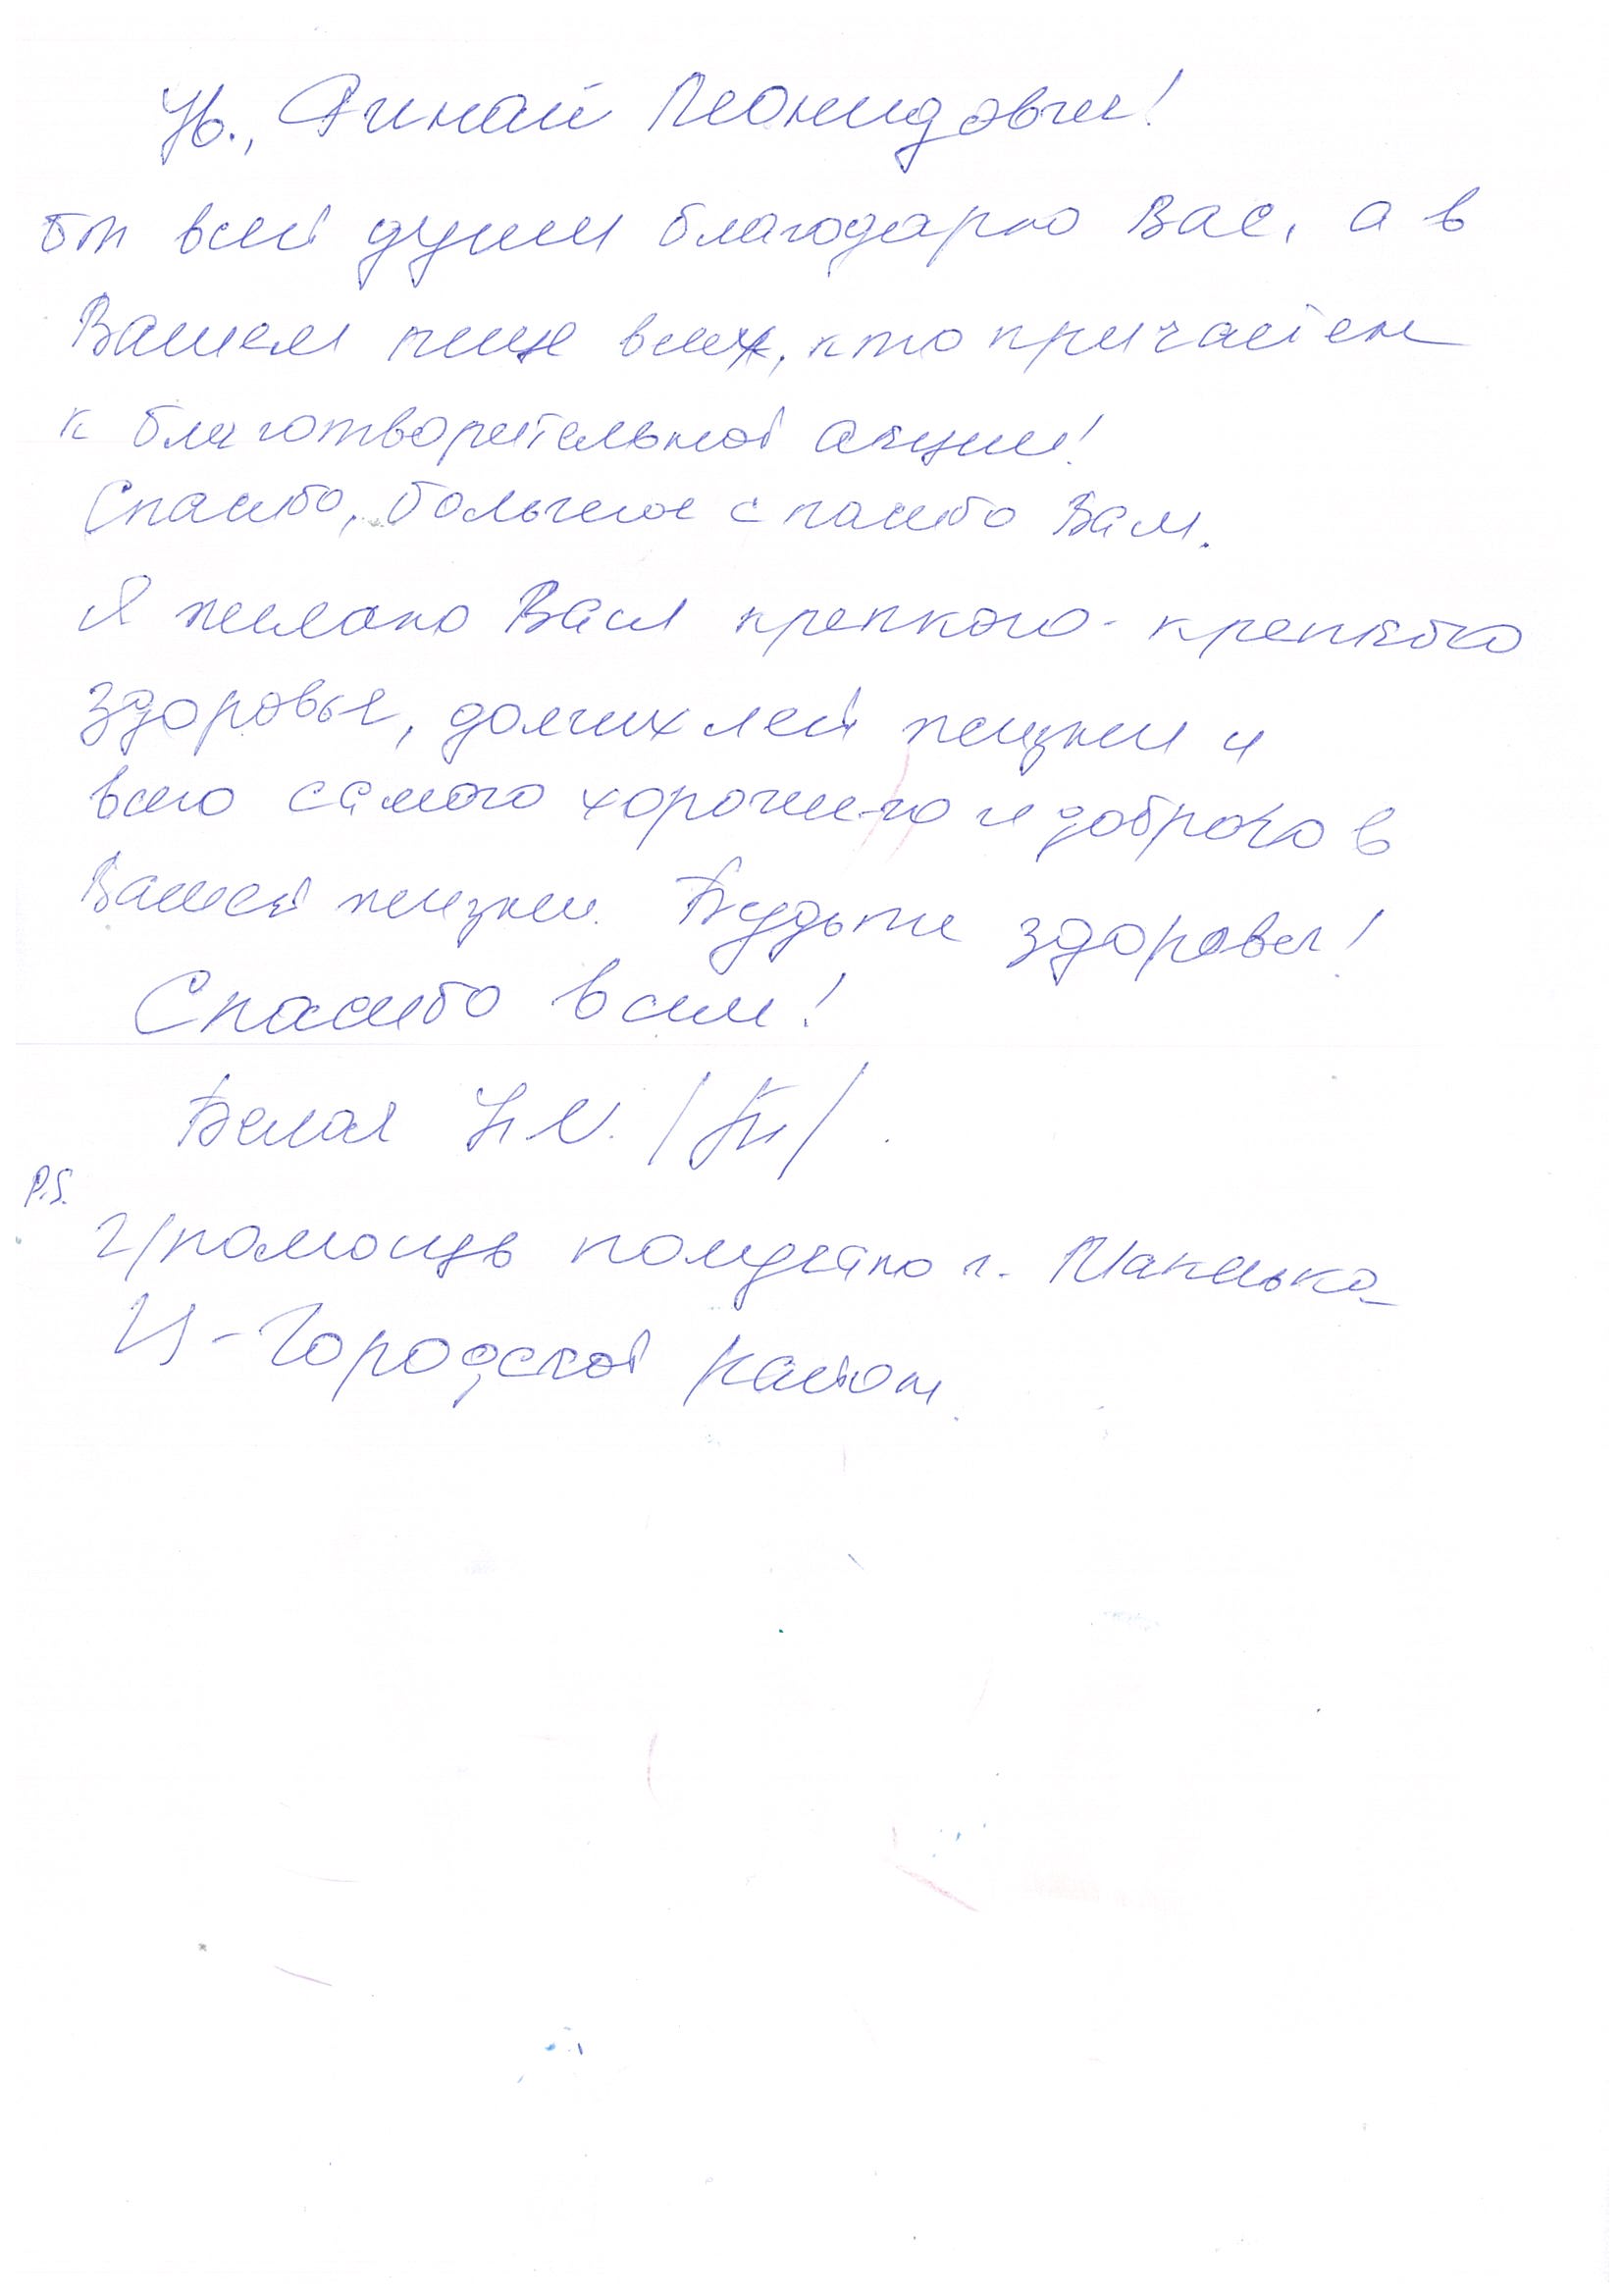 Ув., Ринат Леонидович!
От всей души благодарю Вас, а в
Вашем лице всех, кто причастен
к благотворительной акции!
Спасибо, большое спасибо Вам.
Я желаю Вам крепкого-крепкого
здоровья, долгих лет жизни и
всего самого хорошего и доброго в
Вашей жизни. Будьте здоровы!
Спасибо всем!
Белая
P.S.
г/помощь получаю г. Макеевка
Ц-Городской район.